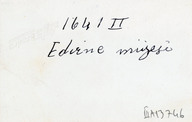 1641 II
Edirne müzesi
IIA13746